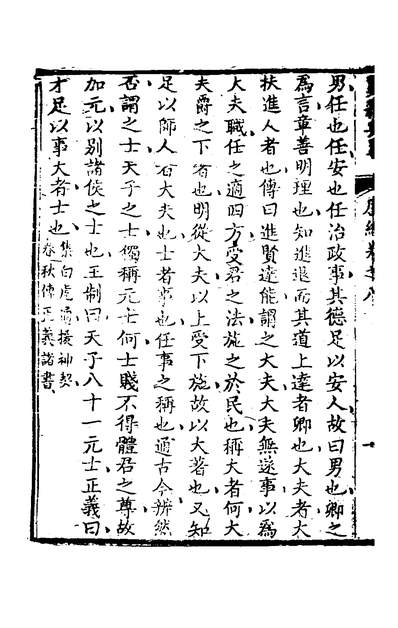 男任也任安也任治政事其德足以安人故曰男也卿之
為言章善明理也知進退而其道上達者卿也大夫者大
扶進人者也傳曰進賢達能謂之大夫大夫無遂事以為
大夫職任之適四方受君之法施之於民也稱大者何大
夫爵之下者也明從大夫以上受下施故以大著也又知
足以師人者大夫也士者事也任事之稱也通古今辨然
否謂之士天子之士獨稱元士何士賤不得體君之尊故
加元以別諸侯之士也王制曰天子八十一元士正義曰
才足以事大者士也集白虎通援神契
春秋傳正義諸書